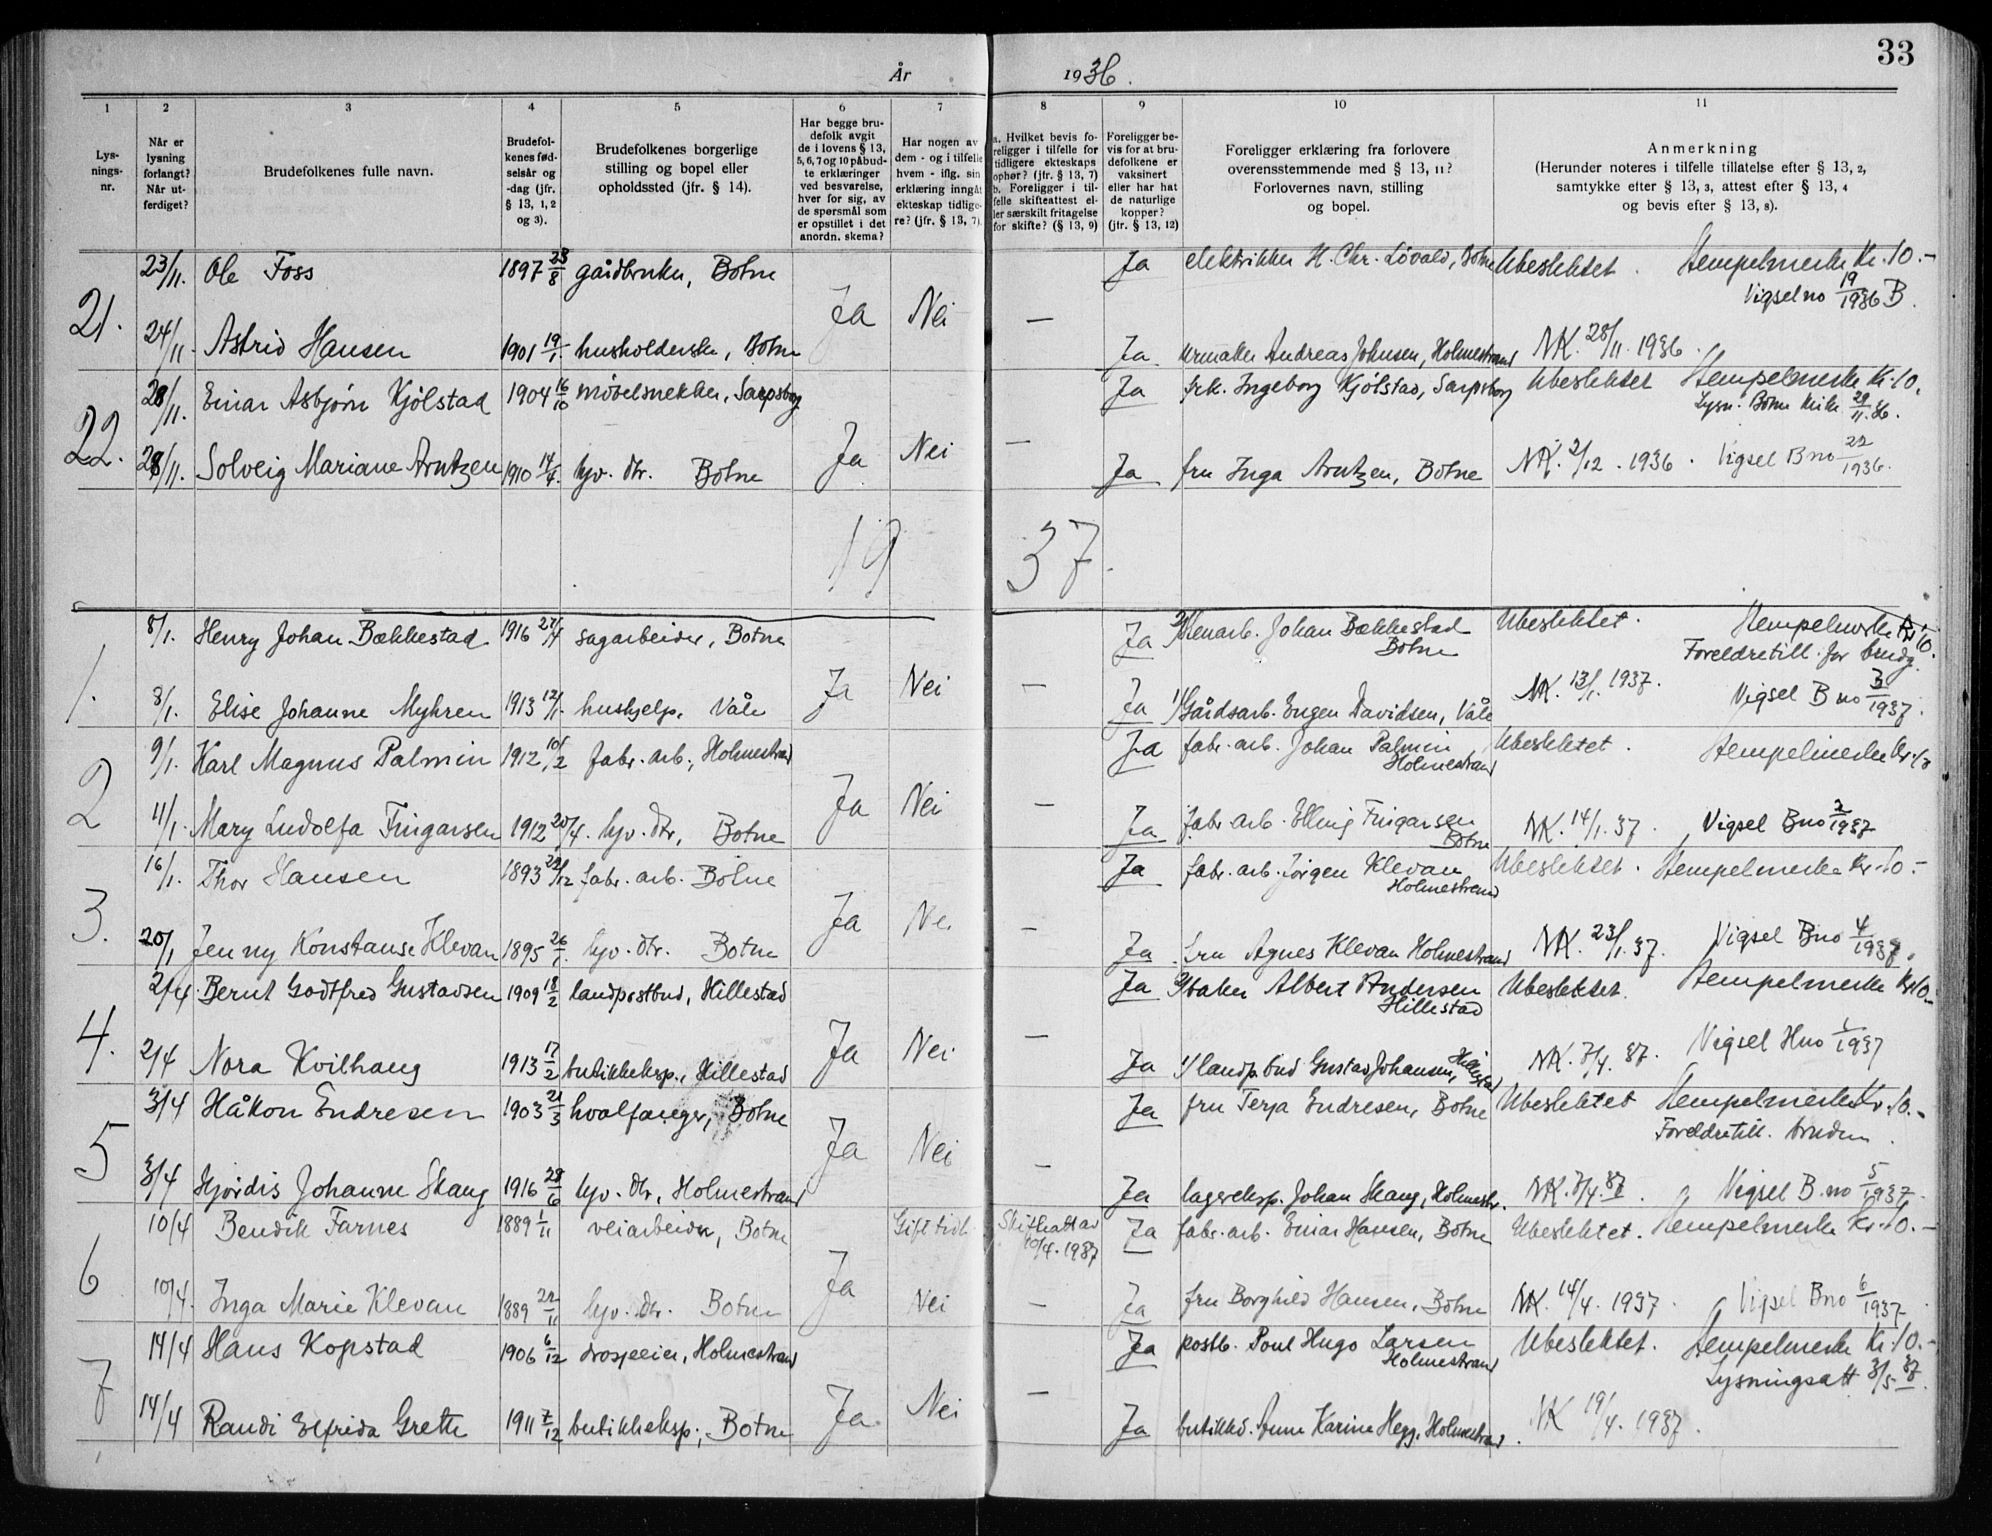 33
År 1936.
1 2 3 4 5 6 7 8 9 10 11
Lys-
nings-
nr.
Når er
lysning
forlangt?
Når ut-
ferdiget?
Brudefolkenes fulle navn.
Brudefol-
kenes fød-
selsår og
-dag (jfr.
§ 13, 1, 2
og 3).
Brudefolkenes borgerlige
stilling og bopel eller
opholdssted (jfr. § 14).
Har begge bru-
defolk avgit
de i lovens § 13,
5, 6, 7 og 10 påbud-
te erklæringer
ved besvarelse,
hver for sig, av
de spørsmål som
er opstillet i det
anordn. skema?
Har nogen av
dem - og i tilfelle
hvem - iflg. sin
erklæring inngåt
ekteskap tidlige-
re? (jfr. § 13, 7)
a. Hvilket bevis fo-
religger i tilfelle for
tidligere ekteskaps
ophør? (jfr. § 13, 7)
b. Foreligger i til-
felle skifteattest el-
ler særskilt fritagelse
for skifte? (§ 13, 9)
Foreligger be-
vis for at bru-
defolkene er
vaksinert
eller har hat
de naturlige
kopper?
(jfr. § 13, 12)
Foreligger erklæring fra forlovere
overensstemmende med § 13, 11?
Forlovernes navn, stilling
og bopel.
Anmerkning
(Herunder noteres i tilfelle tillatelse efter § 13, 2,
samtykke efter § 13, 3, attest efter § 13, 4
og bevis efter § 13, 8).
23/11. Ole Foss 1897 23/8 gårdbruker, Botne Ja elektriker H. Chr. Løvald, Botne Ubeslektet. Stempelmerke Kr. 10.-
Vigsel no 19/1936 B.
21. Ja Nei —
24/11 Astrid Hansen 1901 19/1. husholderske, Botne Ja urmaker Andreas Johnsen, Holmestrand NK. 28/11. 1936.
28/11. Einar Asbjørn Kjølstad 1904 16/10 møbelsnekker, Sarpsborg Ja frk. Ingeborg Kjølstad, Sarpsborg Ubeslektet Stempelmerke Kr. 10.
Lysn. Botne kirke 29/11.36.
22. Ja Nei —
28/11. Solveig Mariane Arntzen 1910 14/4. hjv. dtr. Botne Ja fru Inga Arntzen, Botne NK. 2/12. 1936. Vigsel B no 22/1936.
19 37.
8/1. Henry Johan Bækkestad 1916 27/4 sagarbeider, Botne Ja 2/ Johan Bækkestad Ubeslektet. Stempelmerke Kr 10.
Botne Foreldretill. for brudg.
1. Ja Nei —
8/1. Elise Johanne Myhren 1913 12/1. hushjelp, Våle Ja 1/ Gårdsarb. Eugen Davidsen, Våle NK. 13/1. 1937. Vigsel B no 3/1937.
9/1. Karl Magnus Palmin 1912 10/2 fabr. arb., Holmestrand Ja fabr. arb. Johan Palmin Ubeslektet. Stempelmerke Kr. 10
Holmestrand
2 Ja Nei —
11/1. Mary Ludolfa Fingarsen 1912 20/4. hjv. dtr., Botne Ja fabr. arb. Elling Fingarsen NK. 14/1. 37. Vigsel B no 2/1937
Botne
16/1. Thor Hansen 1893 29/12 fabr. arb. Botne Ja fabr. arb. Jørgen Klevan Ubeslektet. Stempelmerke Kr. 10.-
Holmestrand
3. Ja Nei —
20/1 Jenny Konstanse Klevan 1895 26/1. hjv. dtr. Botne Ja fru Agnes Klevan Holmestrand NK. 23/1. 37. Vigsel B no 4/1937.
2/4. Bernt Godtfred Gustavsen 1909 18/2 landpostbud, Hillestad Ja 2/ baker Albert Andersen Ubeslektet. Stempelmerke Kr 10.-
Hillestad
4. Ja Nei —
2/4 Nora Kvilhaug 1913 17/2 butikkeksp., Hillestad Ja 1/ landp.bud Gustav Johansen, Hillestad NK. 7/4. 37. Vigsel H no 1/1937
3/4 Håkon Endresen 1903 21/3 hvalfanger, Botne Ja fru Terja Endresen, Botne Ubeslektet Stempelmerke Kr. 10.-
Foreldretill. bruden.
5 Ja Nei —
3/4 Hjørdis Johanne Skaug 1916 28/6 hjv. dtr., Holmestrand Ja lagereksp. Johan Skaug, Holmestr. NK. 7/4. 37. Vigsel B. no 5/1937.
10/4 Bendik Farnes 1889 1/11 veiarbeider, Botne Gift tidl. Skifteatt av Ja fabr. arb. Einar Hansen, Botne Ubeslektet. Stempelmerke Kr. 10.-
10/4. 1937
6 Ja
10/4. Inga Marie Klevan 1889 22/11 hjv. dtr. Botne Nei — Ja fru Borghild Hansen, Botne NK. 14/4. 1937. Vigsel B no 6/1937.
14/4 Hans Kopstad 1906 6/12 drosjeeier, Holmestrand Ja postb. Poul Hugo Larsen Ubeslektet. Stempelmerke Kr. 10.-
Holmestrand Lysningsatt 3/5 37.
7 Ja Nei —
14/4 Randi Elfrida Grette 1911 7/12 butikkeksp., Botne Ja butikkd. Anne Karine Hegg, Holmestrand. NK 19/4. 1937.